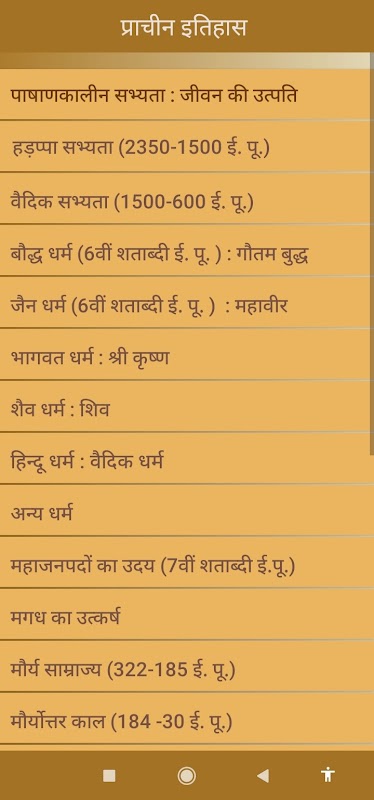 प्राचीन इतिहास
पाषाणकालीन सभ्यता : जीवन की उत्पति
हड़प्पा सभ्यता (2350-1500 ई. पू.)
वैदिक सभ्यता (1500-600 ई. पू.)
बौद्ध धर्म (6वीं शताब्दी ई. पू. ) : गौतम बुद्ध
जैन धर्म (6वीं शताब्दी ई. पू. )  : महावीर
भागवत धर्म : श्री कृष्ण
शैव धर्म : शिव
हिन्दू धर्म : वैदिक धर्म
अन्य धर्म
महाजनपदों का उदय (7वीं शताब्दी ई.पू.)
मगध का उत्कर्ष
मौर्य साम्राज्य (322-185 ई. पू.)
मौर्योत्तर काल (184 -30 ई. पू.)